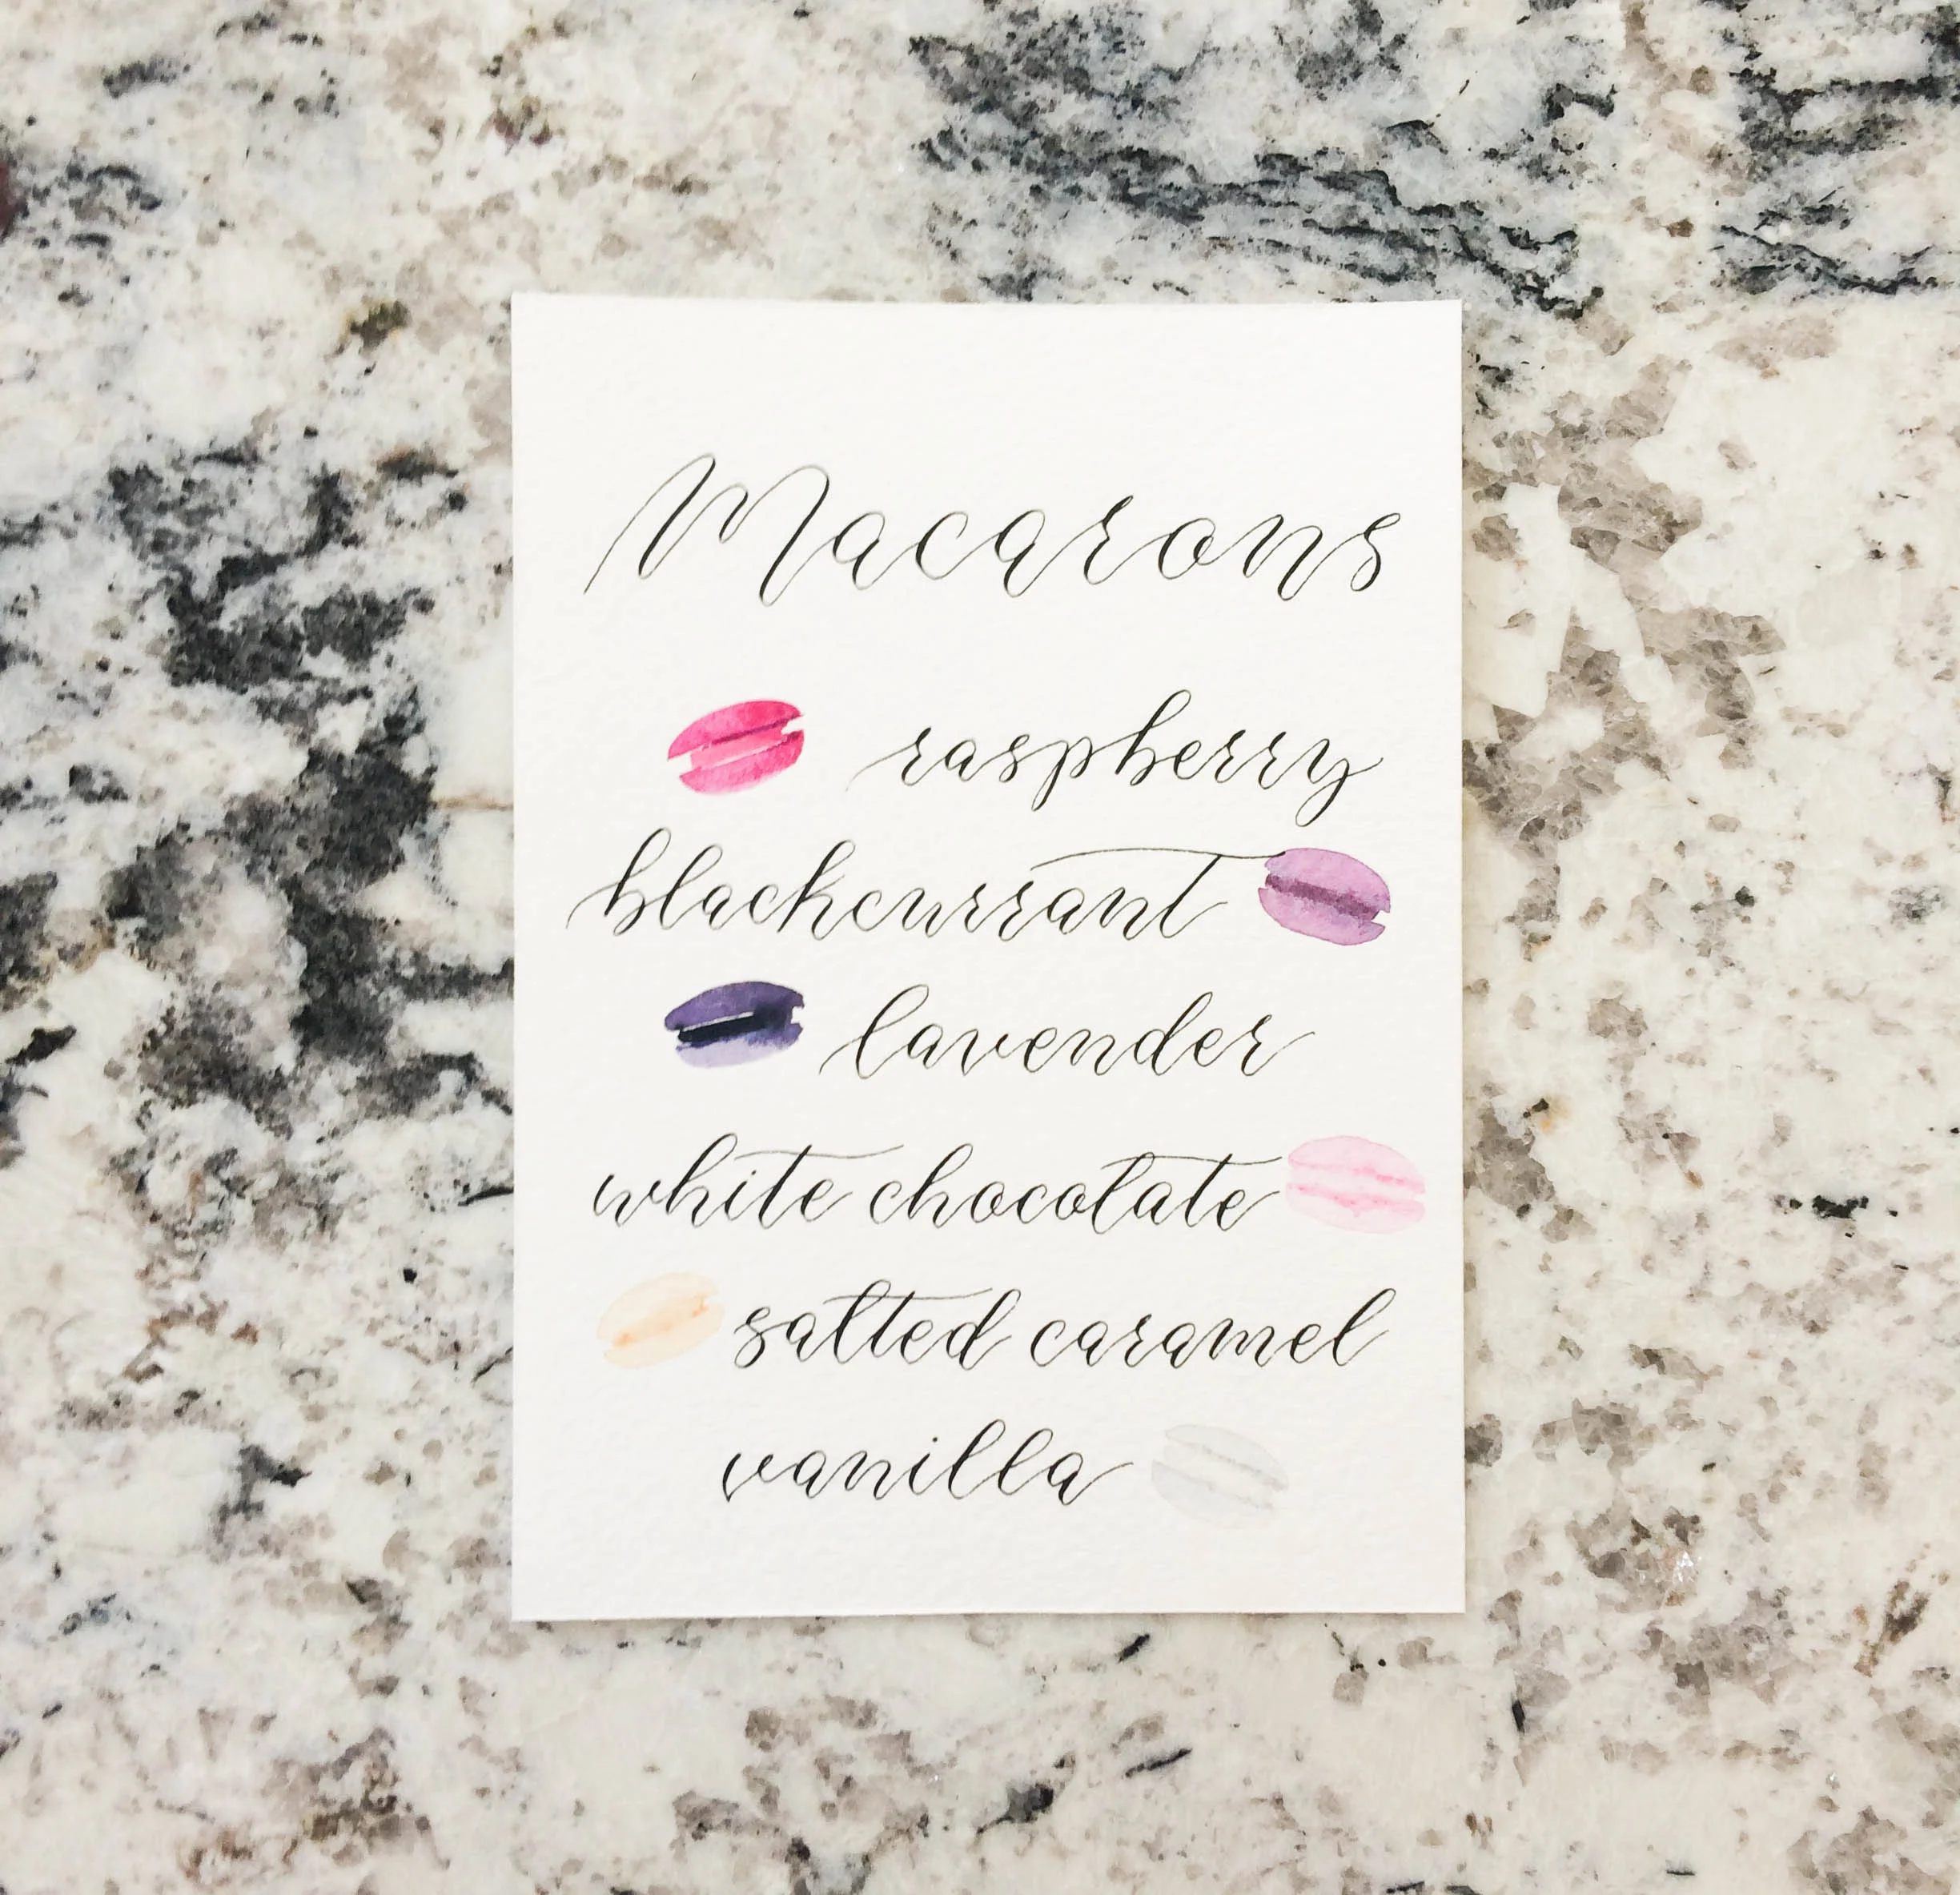 Macarons
raspberry
blackcurrant
lavender
white chocolate
salted caramel
vanilla